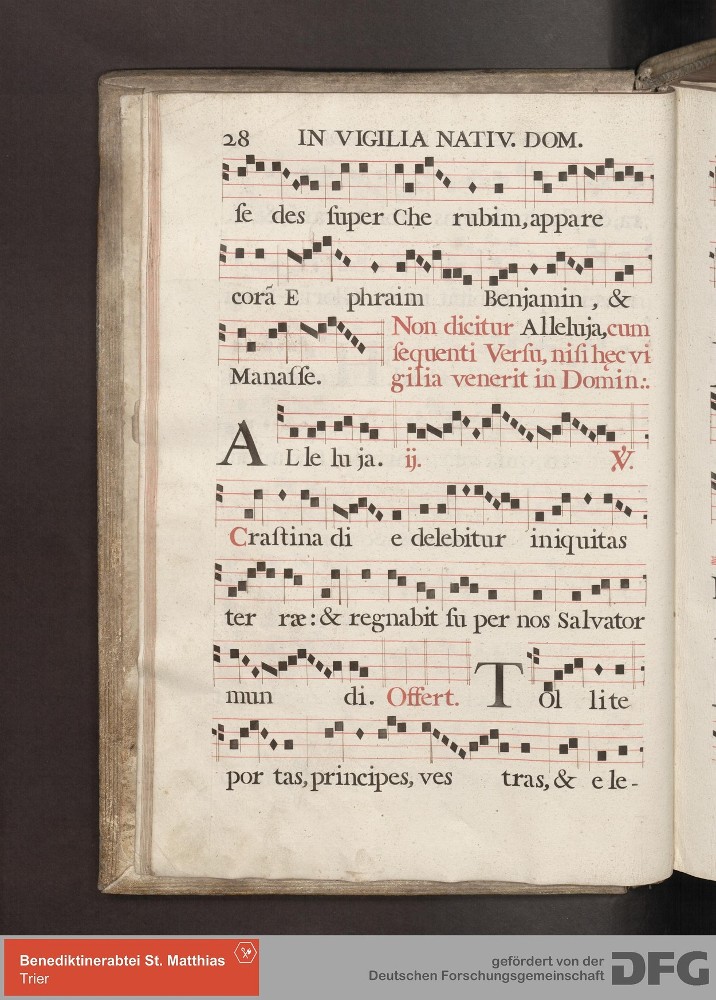 28 IN VIGILIA NATIV. DOM.
ſe des ſuper Che rubim, appare
corã E phraim Benjamin, &
Non dicitur Alleluja, cum
ſequenti Verſu, niſi hęc vi
Manaſſe. gilia venerit in Domin.:.
AL le lu ja. ij. ℣.
Craſtina di e delebitur iniquitas
ter ræ: & regnabit ſu per nos Salvator
mun di. Offert. Tol lite
por tas, principes, ves tras, & e le-
Benediktinerabtei St. Matthias
Trier
gefördert von der
Deutschen Forschungsgemeinschaft DFG